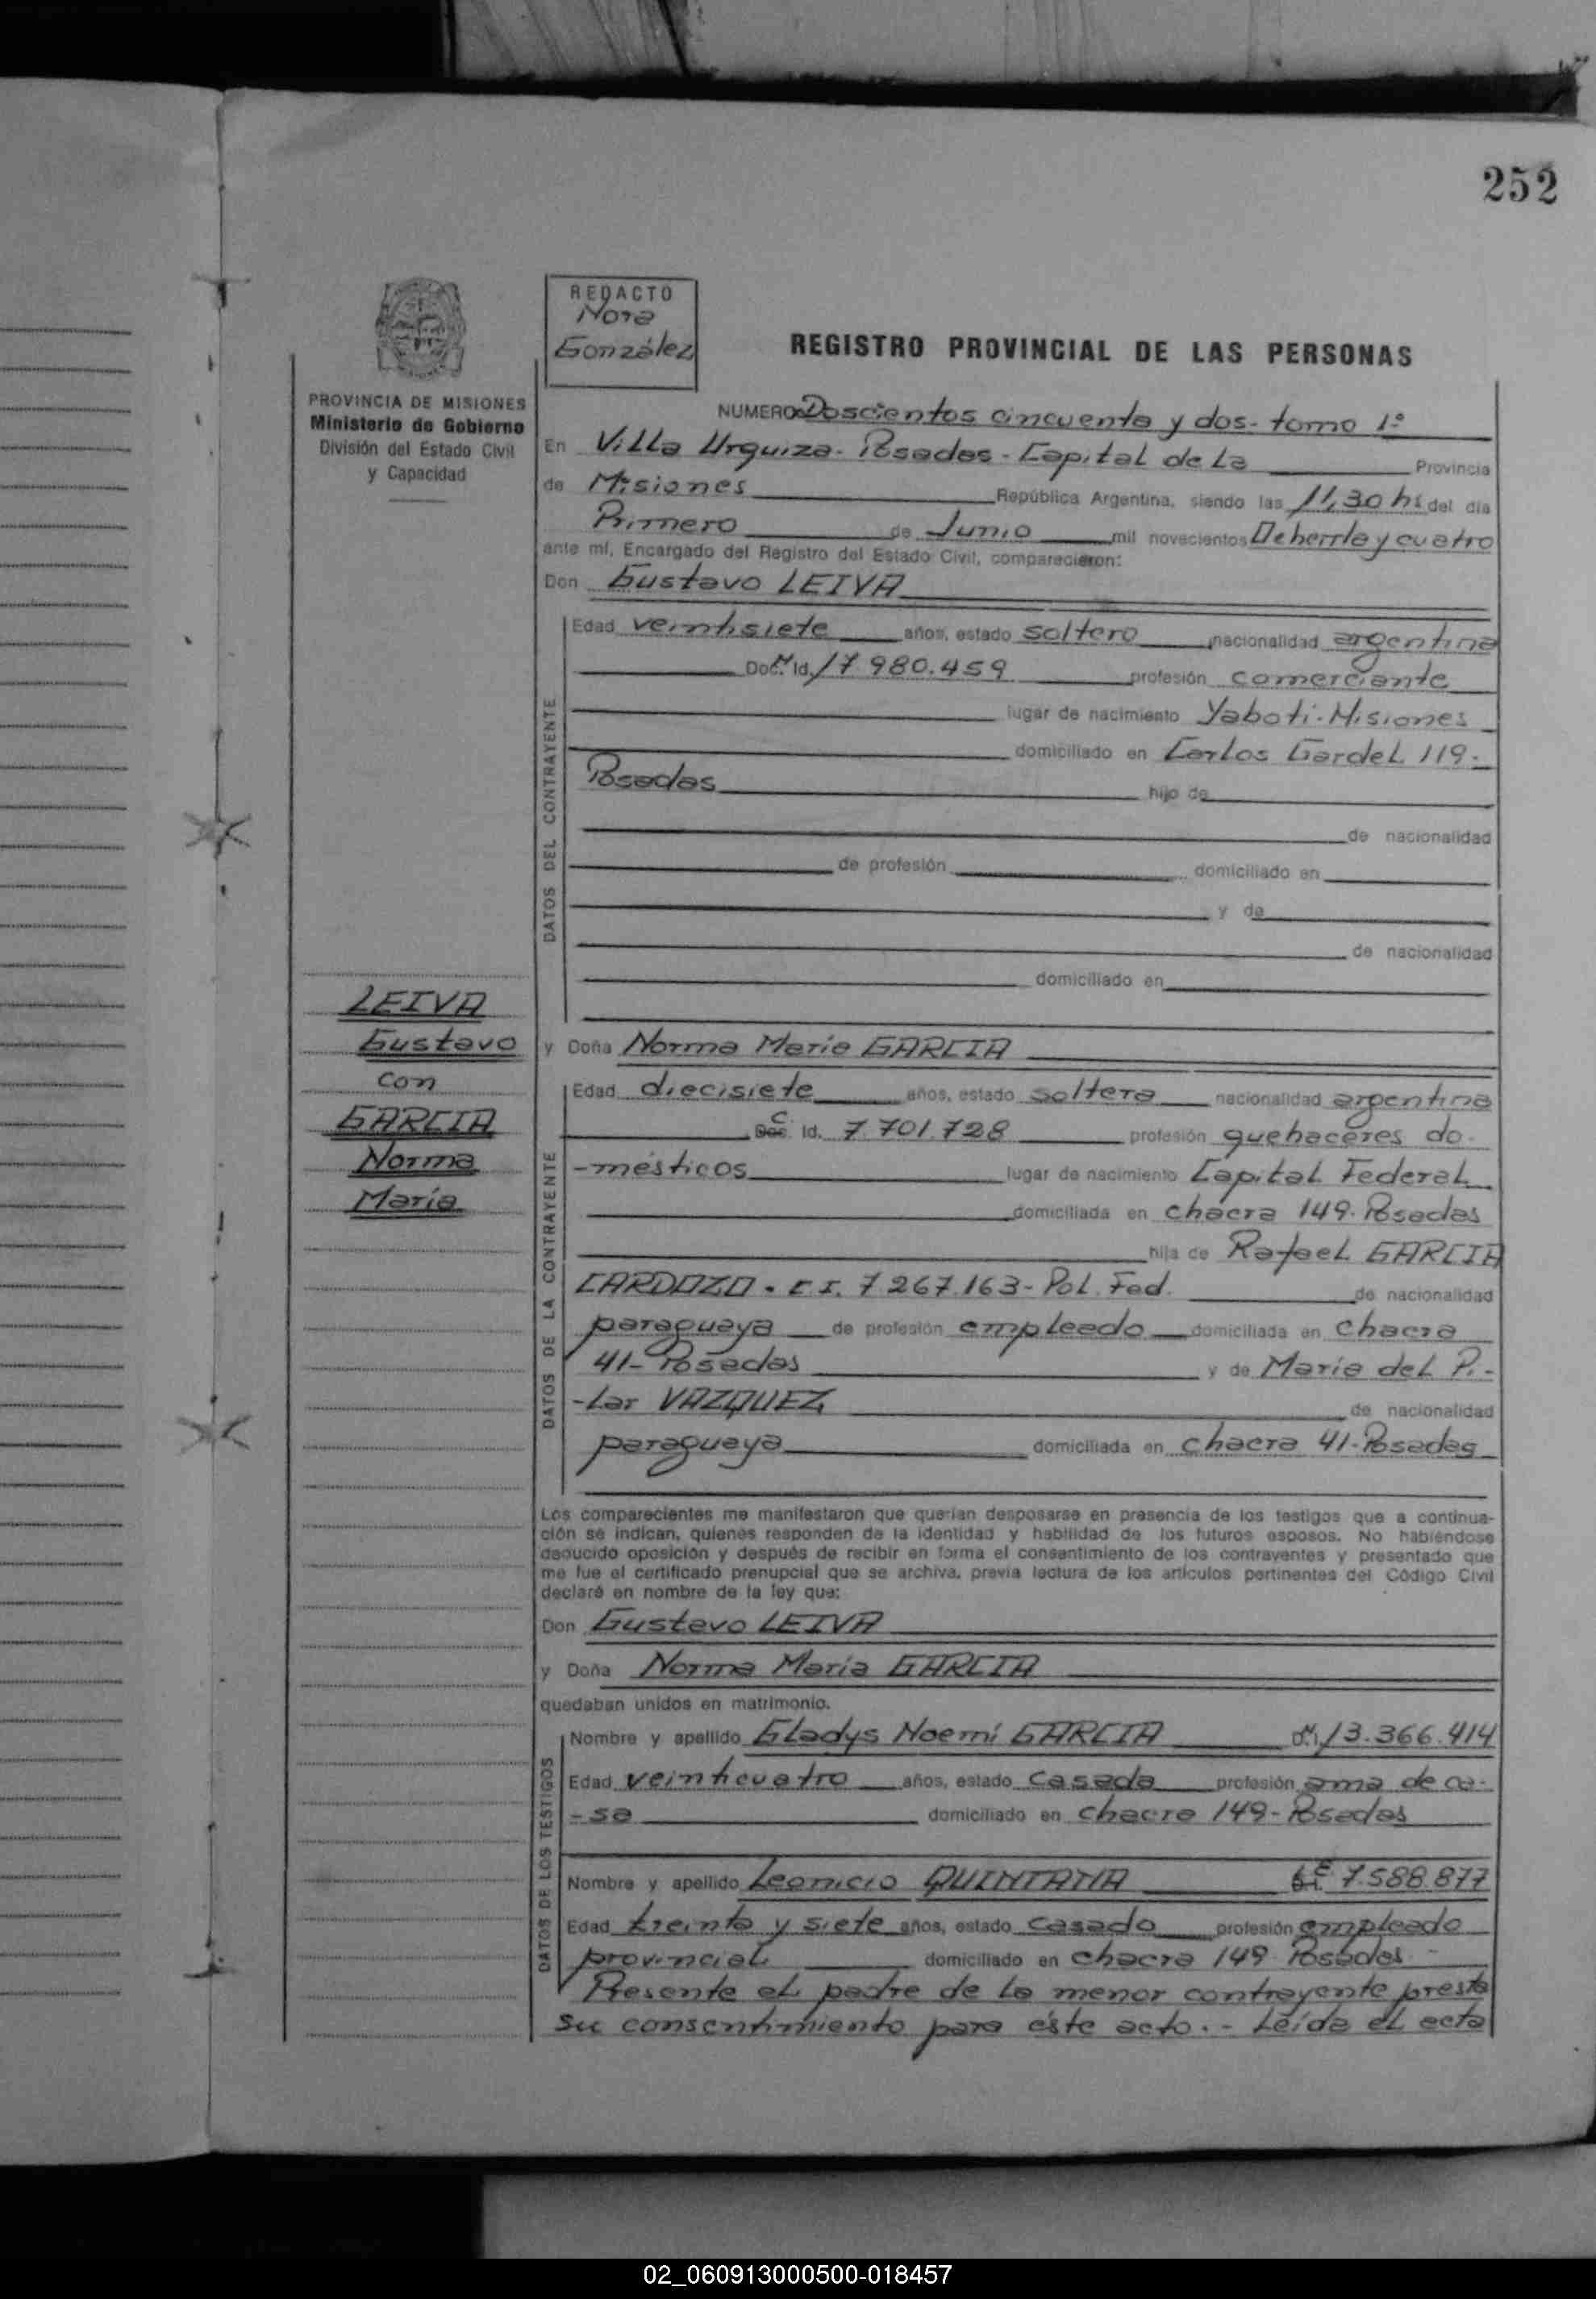 252
REDACTO
Nora
González
REGISTRO PROVINCIAL DE LAS PERSONAS
PROVINCIA DE MISIONES
Ministerio de Gobierno
División del Estado Civil
y Capacidad
NUMERO Doscientos cincuenta y dos - tomo 1º
En Villa Urquiza - Posadas - Capital de La Provincia
de Misiones República Argentina, siendo las 11,30 hs del día
Primero de Junio mil novecientos ochenta y cuatro
ante mí, Encargado del Registro del Estado Civil, comparecieron:
Don Gustavo LEIVA
DATOS DEL CONTRAYENTE
Edad veintisiete años, estado soltero nacionalidad argentina
Doc. Id. 17.980.459 profesión comerciante
lugar de nacimiento Yaboti - Misiones
domiciliado en Carlos Gardel 119 -
Posadas hijo de
de nacionalidad
de profesión domiciliado en
y de
de nacionalidad
domiciliado en
LEIVA
Gustavo
con
GARCIA
Norma
María
y Doña Norma María GARCIA
DATOS DE LA CONTRAYENTE
Edad diecisiete años, estado soltera nacionalidad argentina
C. Id. 7.701.728 profesión quehaceres do-
-mésticos lugar de nacimiento Capital Federal
domiciliada en chacra 149 - Posadas
hija de Rafael GARCIA
CARDOZO - C.I. 7.267.163 - Pol. Fed. de nacionalidad
paraguaya de profesión empleado domiciliada en chacra
41 - Posadas y de María del Pi-
-lar VAZQUEZ de nacionalidad
paraguaya domiciliada en chacra 41 - Posadas
Los comparecientes me manifestaron que querían desposarse en presencia de los testigos que a continua-
ción se indican, quienes responden de la identidad y habilidad de los futuros esposos. No habiéndose
deducido oposición y después de recibir en forma el consentimiento de los contrayentes y presentado que
me fue el certificado prenupcial que se archiva, previa lectura de los artículos pertinentes del Código Civil
declaré en nombre de la ley que:
Don Gustavo LEIVA
y Doña Norma María GARCIA
quedaban unidos en matrimonio.
DATOS DE LOS TESTIGOS
Nombre y apellido Gladys Noemí GARCIA 13.366.414
Edad veinticuatro años, estado casada profesión ama de ca-
-sa domiciliado en chacra 149 - Posadas
Nombre y apellido Leonicio QUINTANA 7.588.877
Edad treinta y siete años, estado casado profesión empleado
provincial domiciliado en chacra 149 Posadas -
Presente el padre de la menor contrayente presta
su consentimiento para éste acto. - Leída el acta
02_060913000500-018457